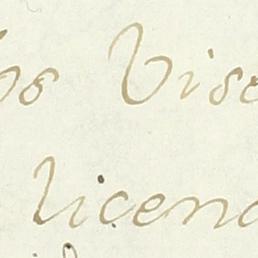 os Vise
licen